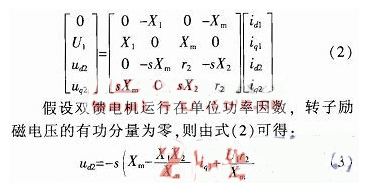 [0 U₁ u_d2 u_q2] = [0 -X₁ 0 -Xₘ; X₁ 0 Xₘ 0; 0 -sXₘ r₂ -sX₂; sXₘ 0 sX₂ r₂] [i_d1 i_q1 i_d2 i_q2] (2)
假设双馈电机运行在单位功率因数，转子励
磁电压的有功分量为零,则由式(2)可得：
u_d2=-s(Xₘ-X₁X₂/Xₘ)i_q (3)